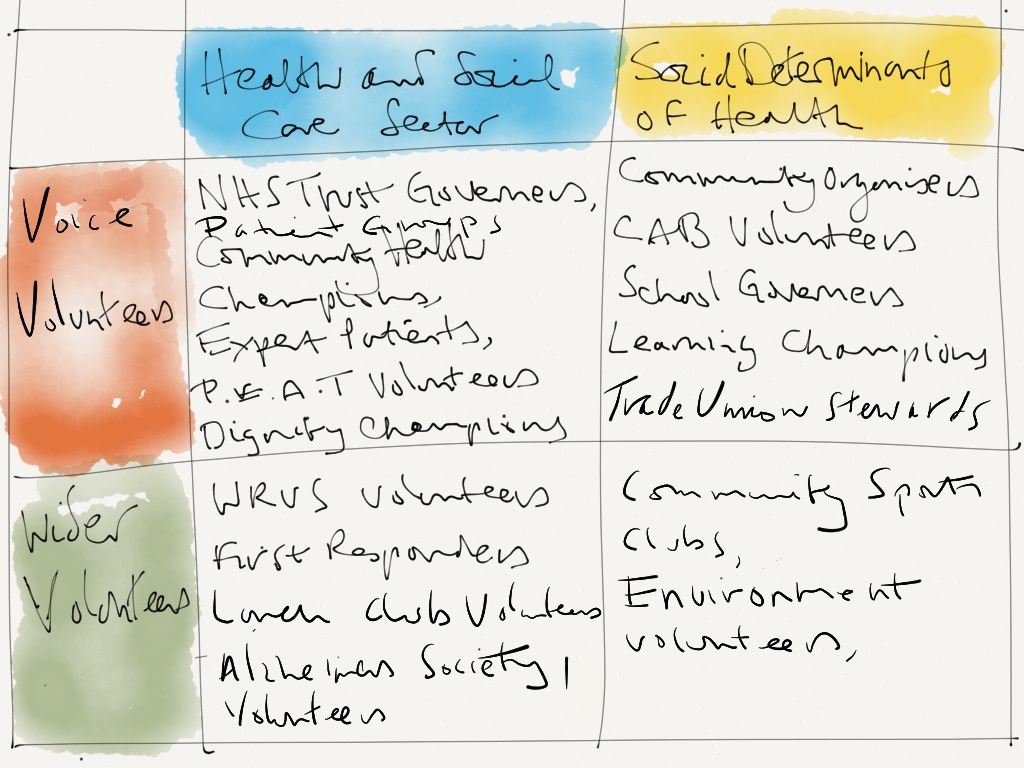 Health and Social
Care Sector
Social Determinants
of Health
Voice
Volunteers
NHS Trust Governers,
Patient Groups
Community Health
Champions,
Expert Patients,
P.E.A.T Volunteers
Dignity Champions
Community Organisers
CAB Volunteers
School Governers
Learning Champions
Trade Union Stewards
Wider
Volunteers
WRVS Volunteers
First Responders
Lunch Club Volunteers
Alzheimers Society,
Volunteers
Community Sports
Clubs,
Environment
volunteers,